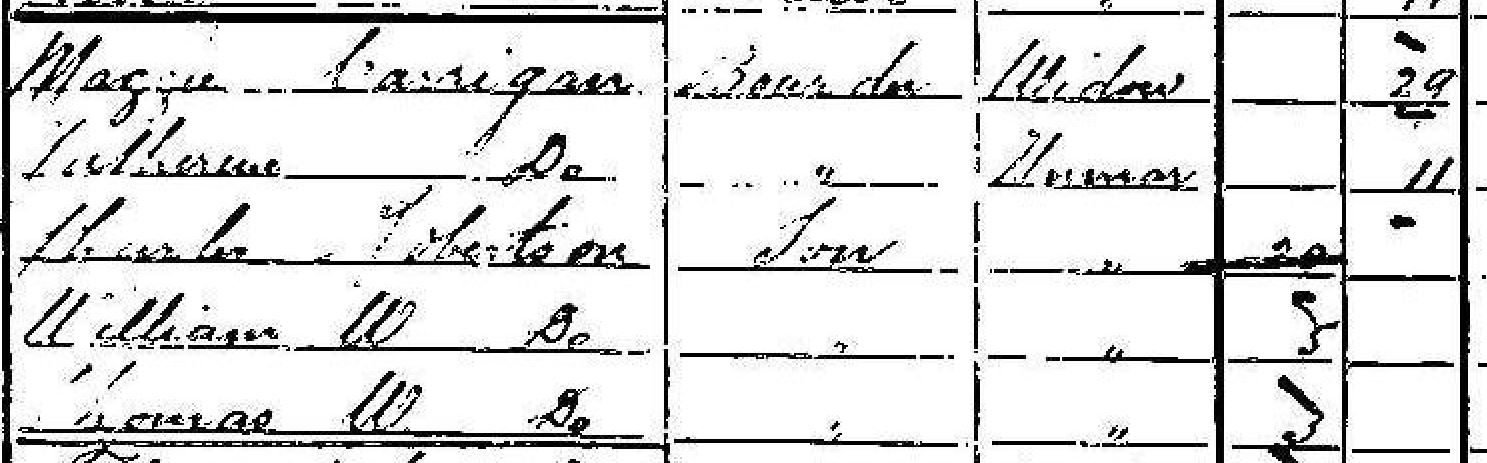 Maggie Carrigan Boarder Widow 29
Catherine Do " Unmar 11
Charles Robertson Son " 20
William W Do " " 5
Thomas W Do " " 3